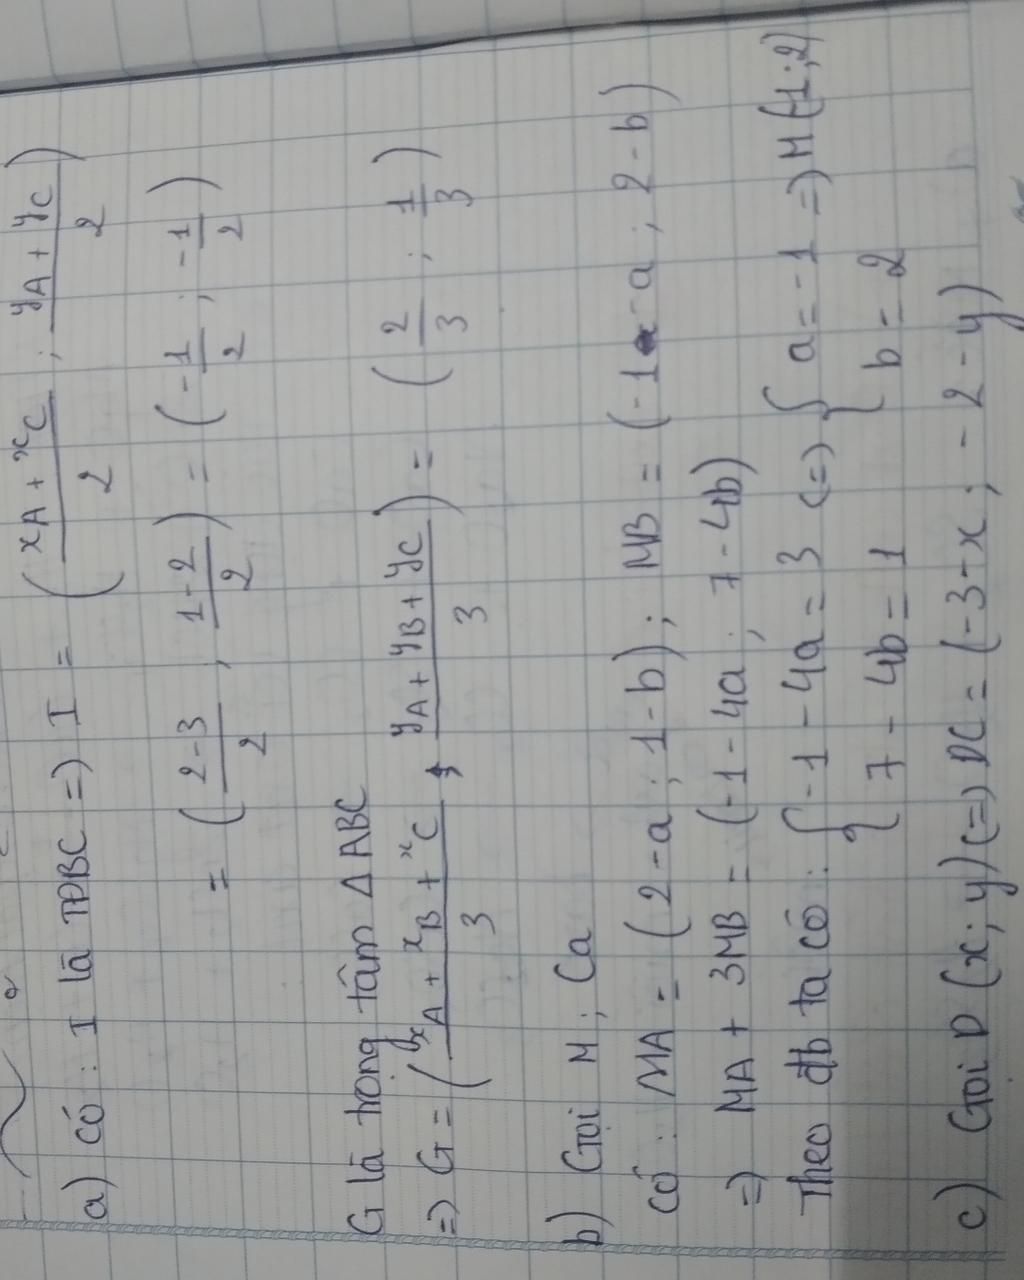 a) có : I là TĐBC => I = ( xA + xC / 2 ; yA + yC / 2 )
= ( 2-3 / 2 ; 1-2 / 2 ) = ( -1/2 ; -1/2 )
G là trọng tâm ΔABC
=> G = ( xA + xB + xC / 3 ; yA + yB + yC / 3 ) = ( 2/3 ; 1/3 )
b) Gọi M ; Ca
có : MA = ( 2-a ; 1-b) ; MB = (-1-a ; 2-b)
=> MA + 3MB = (-1-4a ; 7-4b)
Theo đb ta có : { -1-4a = 3 (=) { a = -1 => M(-1;2)
7-4b = 1 b = 2
c) Gọi D (x; y) (=) DC = (-3-x ; -2-y)